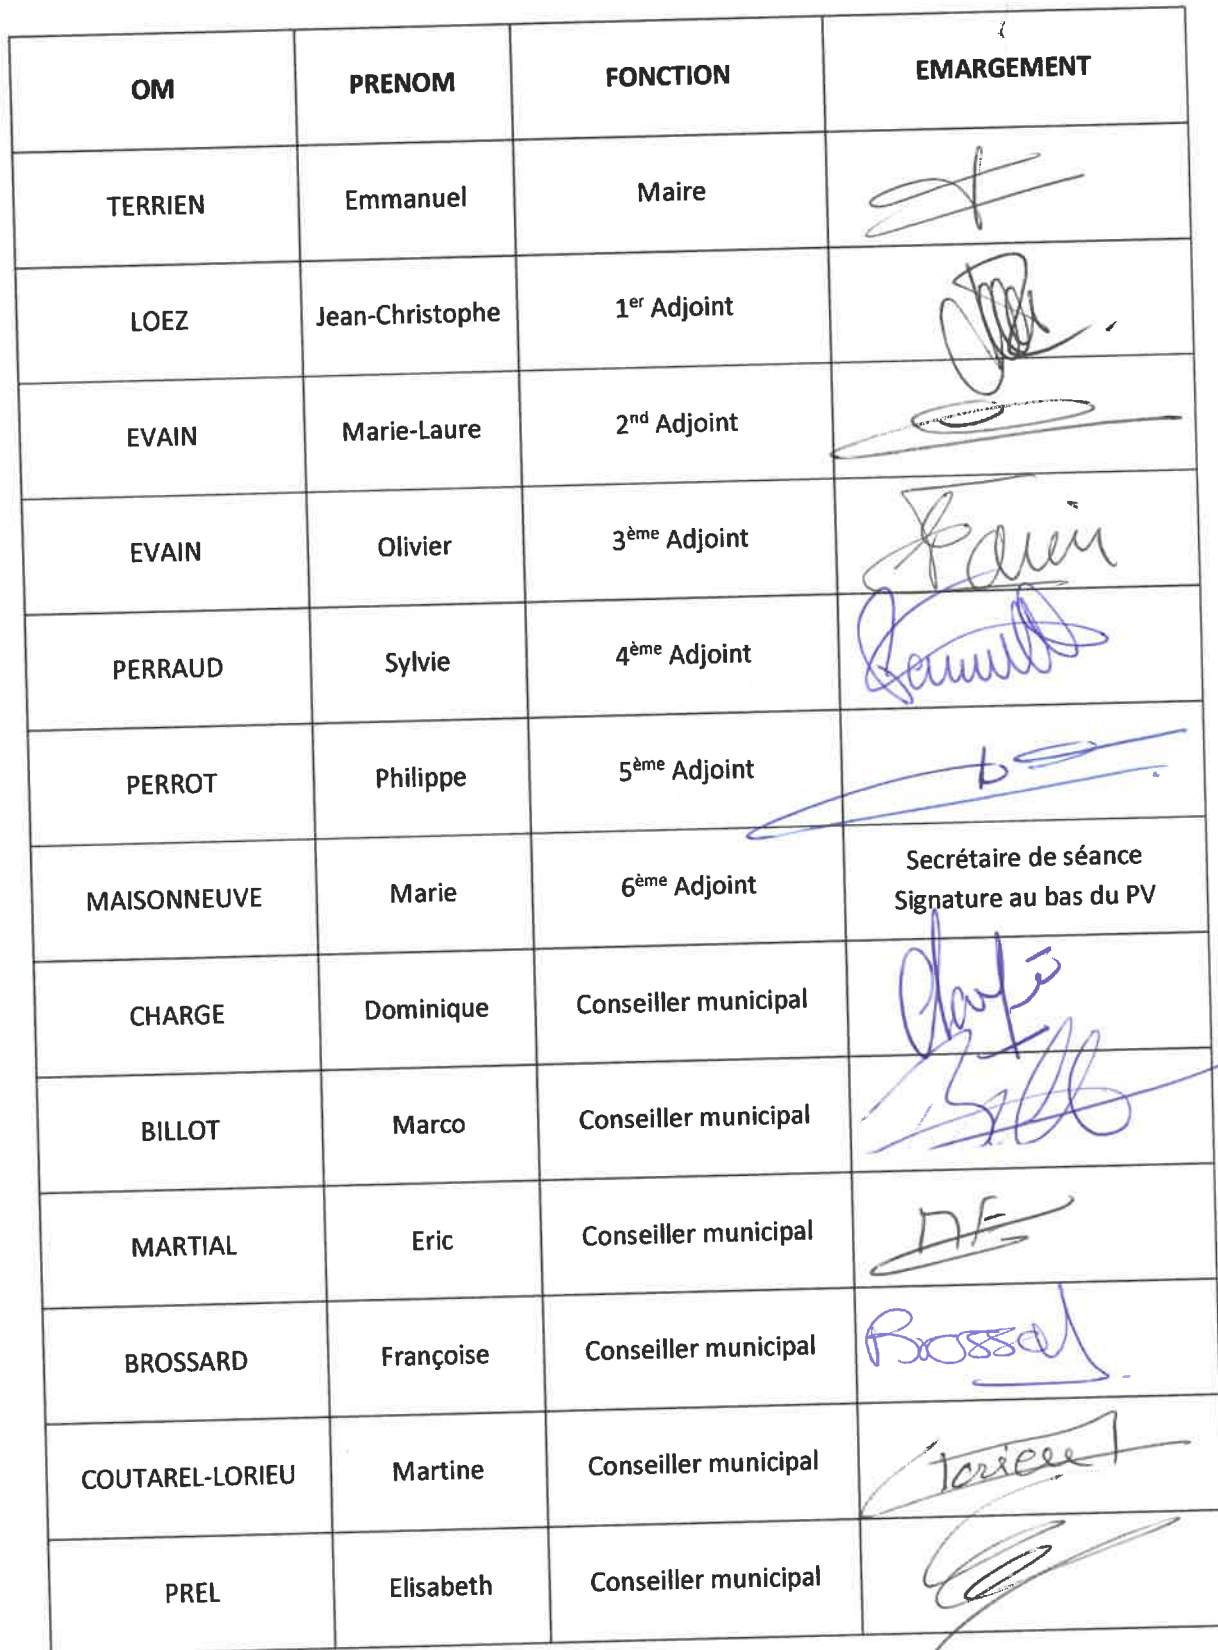 OM PRENOM FONCTION EMARGEMENT
TERRIEN Emmanuel Maire
LOEZ Jean-Christophe 1er Adjoint
EVAIN Marie-Laure 2nd Adjoint
EVAIN Olivier 3ème Adjoint
PERRAUD Sylvie 4ème Adjoint
PERROT Philippe 5ème Adjoint
MAISONNEUVE Marie 6ème Adjoint Secrétaire de séance
Signature au bas du PV
CHARGE Dominique Conseiller municipal
BILLOT Marco Conseiller municipal
MARTIAL Eric Conseiller municipal
BROSSARD Françoise Conseiller municipal
COUTAREL-LORIEU Martine Conseiller municipal
PREL Elisabeth Conseiller municipal